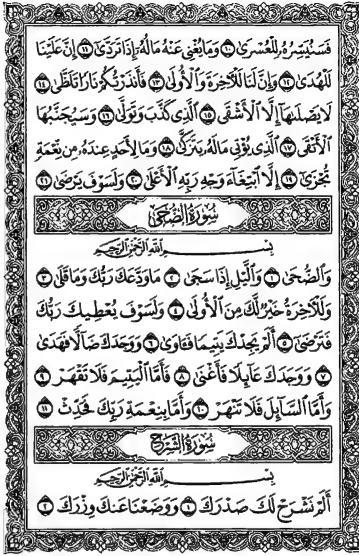 فَسَنُيَسِّرُهُ لِلْعُسْرَىٰ ١٠ وَمَا يُغْنِي عَنْهُ مَالُهُ إِذَا تَرَدَّىٰ ١١ إِنَّ عَلَيْنَا
لَلْهُدَىٰ ١٢ وَإِنَّ لَنَا لَلْآخِرَةَ وَالْأُولَىٰ ١٣ فَأَنذَرْتُكُمْ نَارًا تَلَظَّىٰ ١٤
لَا يَصْلَىٰهَا إِلَّا الْأَشْقَى ١٥ الَّذِي كَذَّبَ وَتَوَلَّىٰ ١٦ وَسَيُجَنَّبُهَا
الْأَتْقَى ١٧ الَّذِي يُؤْتِي مَالَهُ يَتَزَكَّىٰ ١٨ وَمَا لِأَحَدٍ عِندَهُ مِن نِّعْمَةٍ
تُجْزَىٰ ١٩ إِلَّا ابْتِغَاءَ وَجْهِ رَبِّهِ الْأَعْلَىٰ ٢٠ وَلَسَوْفَ يَرْضَىٰ ٢١
سُورَةُ الضُّحَىٰ
بِسْمِ اللَّهِ الرَّحْمَٰنِ الرَّحِيمِ
وَالضُّحَىٰ ١ وَاللَّيْلِ إِذَا سَجَىٰ ٢ مَا وَدَّعَكَ رَبُّكَ وَمَا قَلَىٰ ٣
وَلَلْآخِرَةُ خَيْرٌ لَّكَ مِنَ الْأُولَىٰ ٤ وَلَسَوْفَ يُعْطِيكَ رَبُّكَ
فَتَرْضَىٰ ٥ أَلَمْ يَجِدْكَ يَتِيمًا فَآوَىٰ ٦ وَوَجَدَكَ ضَالًّا فَهَدَىٰ
٧ وَوَجَدَكَ عَائِلًا فَأَغْنَىٰ ٨ فَأَمَّا الْيَتِيمَ فَلَا تَقْهَرْ ٩
وَأَمَّا السَّائِلَ فَلَا تَنْهَرْ ١٠ وَأَمَّا بِنِعْمَةِ رَبِّكَ فَحَدِّثْ ١١
سُورَةُ الشَّرْحِ
بِسْمِ اللَّهِ الرَّحْمَٰنِ الرَّحِيمِ
أَلَمْ نَشْرَحْ لَكَ صَدْرَكَ ١ وَوَضَعْنَا عَنكَ وِزْرَكَ ٢